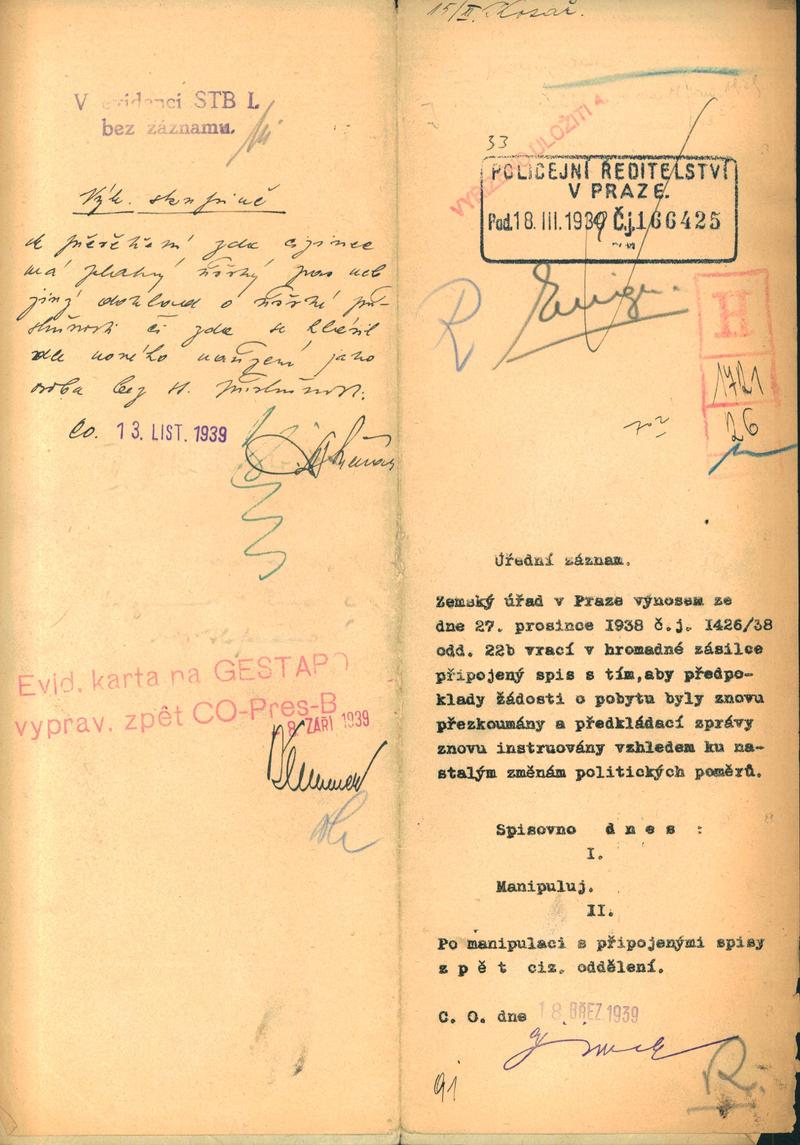 V evidenci STB I.
bez záznamu.
Výk. skupině
k přešetření zda cizinec
má platný říšský pas neb
jiný doklad o říšské pří-
slušnosti či zda se hlásil
dle nového nařízení jako
osoba bez st. příslušnosti.
Co. 13. LIST. 1939
Evid. karta na GESTAPO
vyprav. zpět CO-Pres-B
8 ZÁŘÍ 1939
15/II.
33
ULOŽITI
POLICEJNÍ ŘEDITELSTVÍ
V PRAZE.
Pod. 18. III. 1939 Č.j. 166425
R
H
1721
26
Úřední záznam.
Zemský úřad v Praze výnosem ze
dne 27. prosince 1938 č.j. 1426/38
odd. 22b vrací v hromadné zásilce
připojený spis s tím,aby předpo-
klady žádosti o pobytu byly znovu
přezkoumány a předkládací zprávy
znovu instruovány vzhledem ku na-
stalým změnám politických poměrů.
Spisovno d n e s :
I.
Manipuluj.
II.
Po manipulaci s připojenými spisy
z p ě t ciz. oddělení.
C. O. dne 18 BŘEZ 1939
91
R.